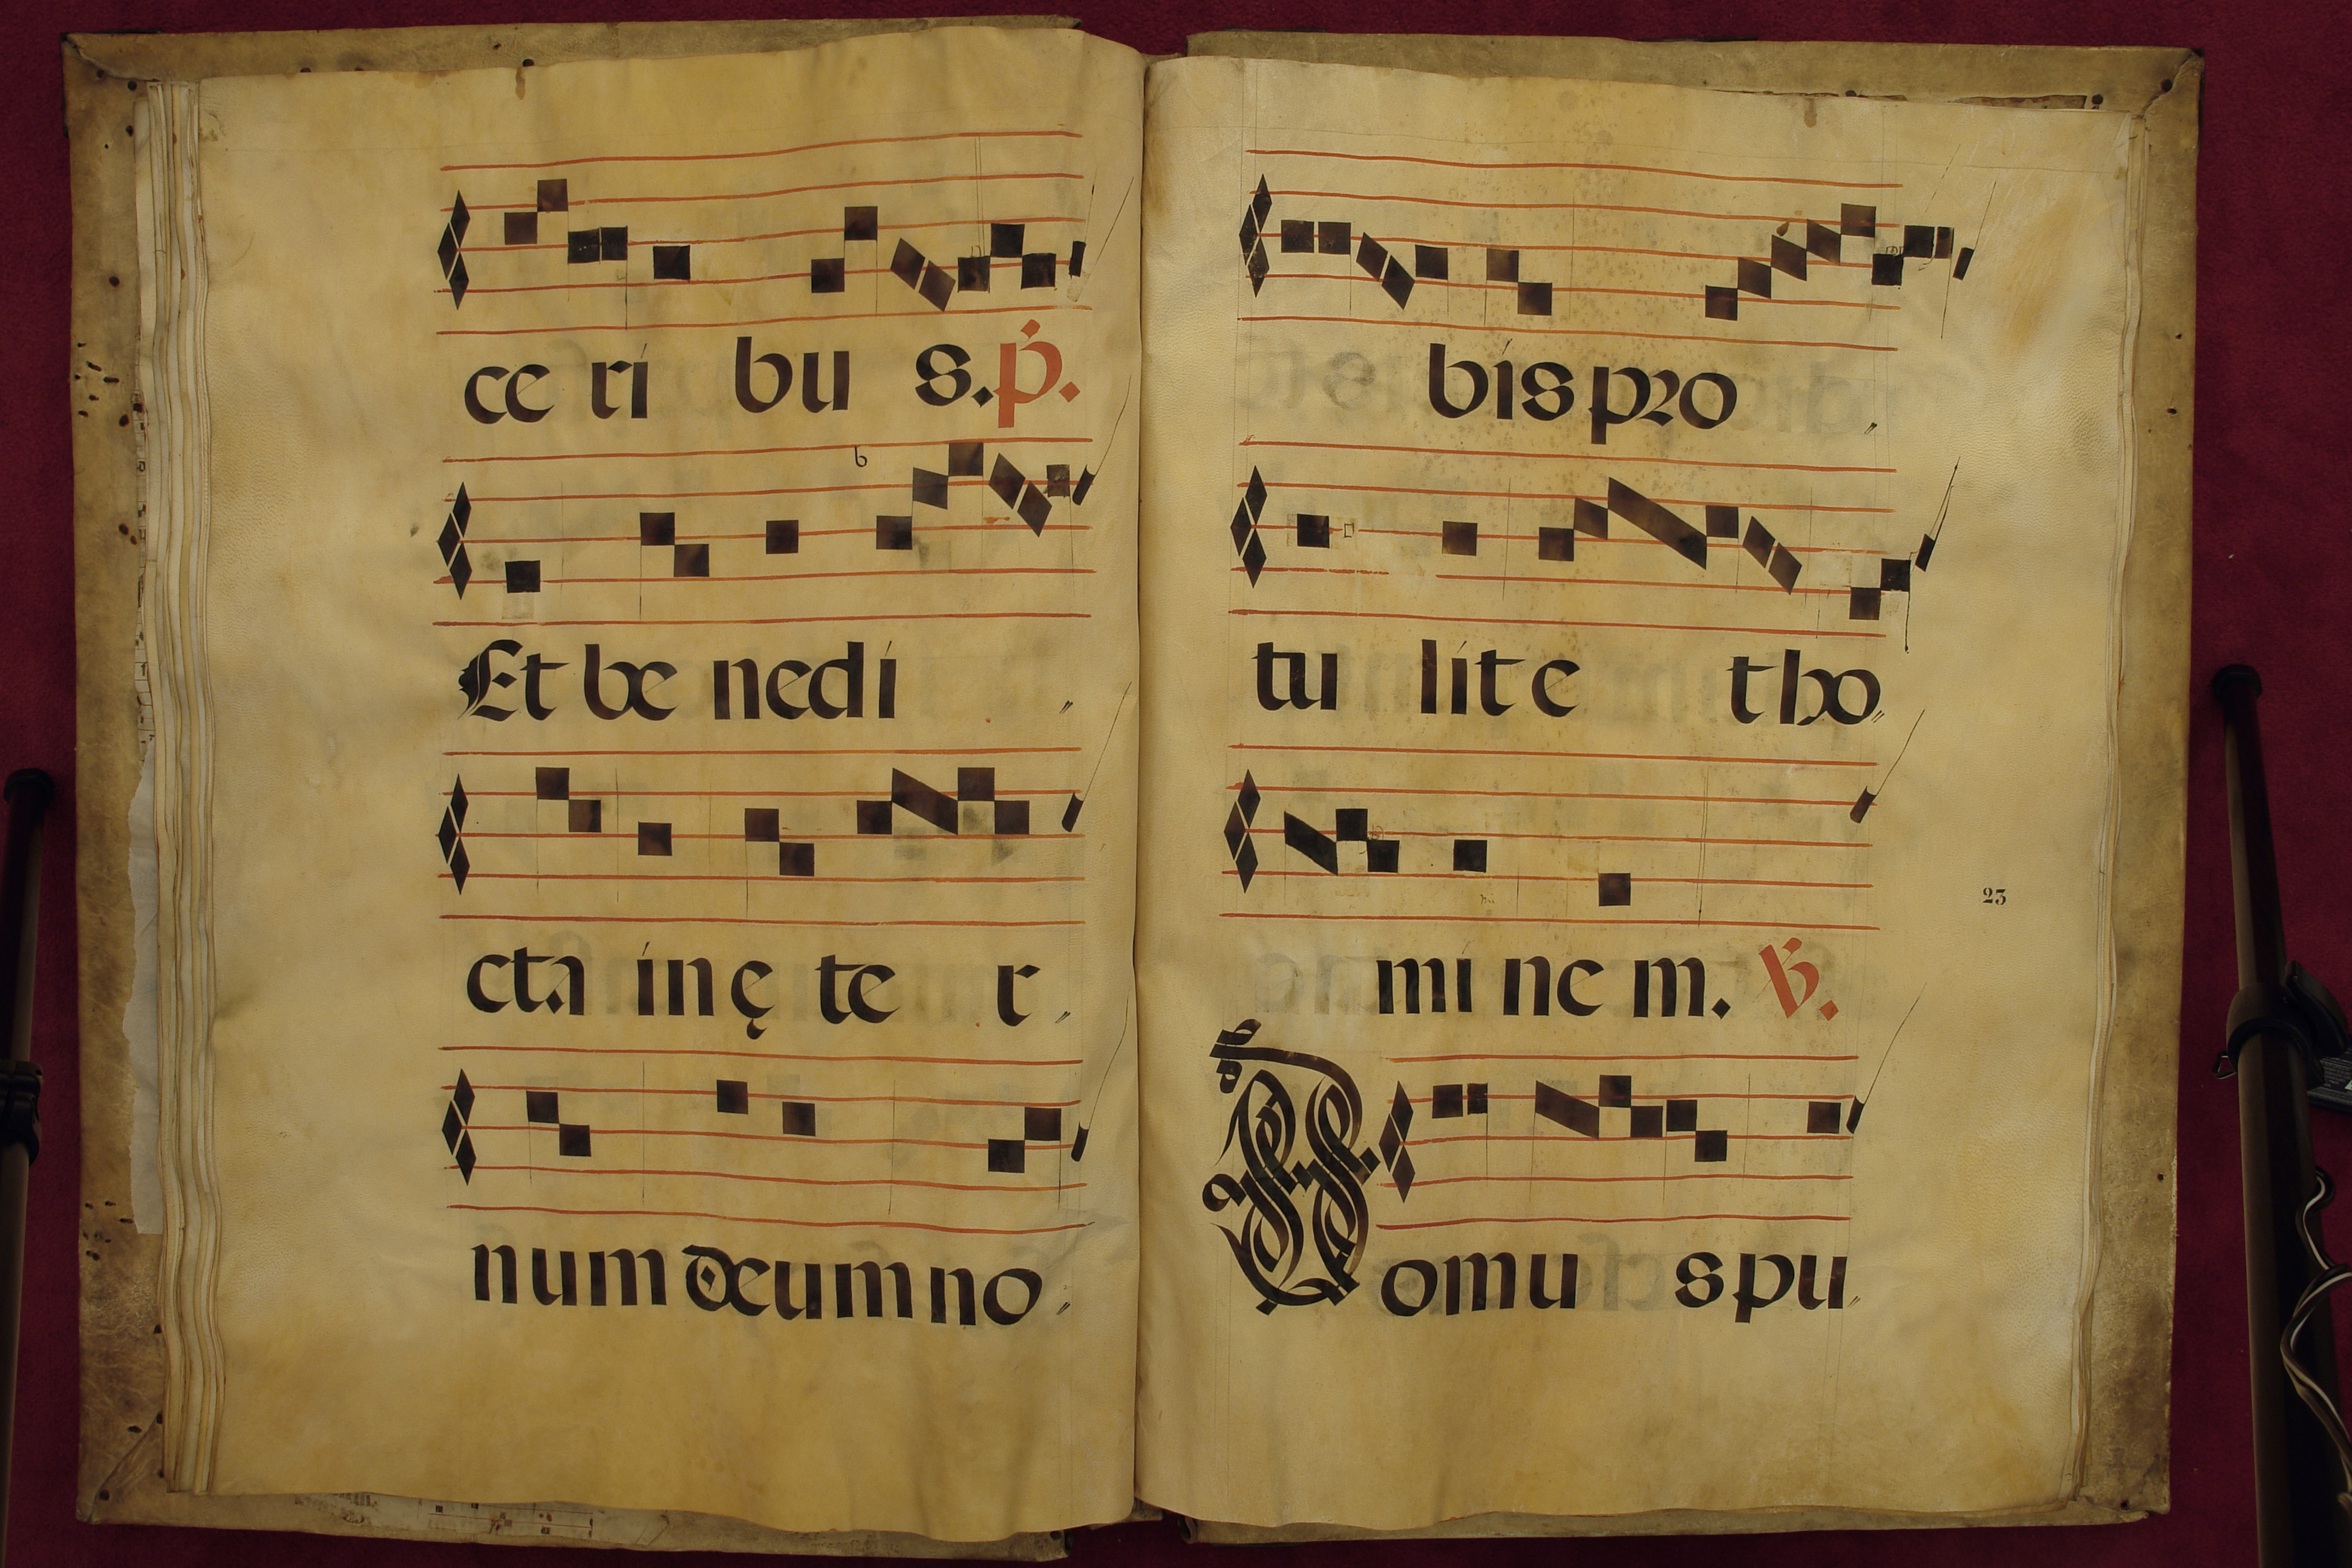 ce ri bu s. p.
Et be nedi
cta in ęte r
num deum no
bis pro
tu lit e tho
mi ne m. V.
23
Domu s pu